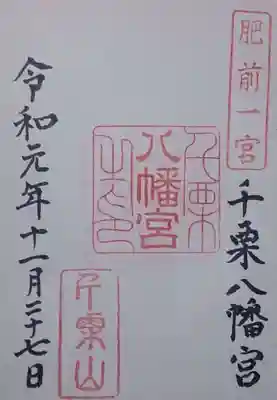 肥前一宮
千栗八幡宮
千栗
八幡宮
千栗山
令和元年十一月二十七日